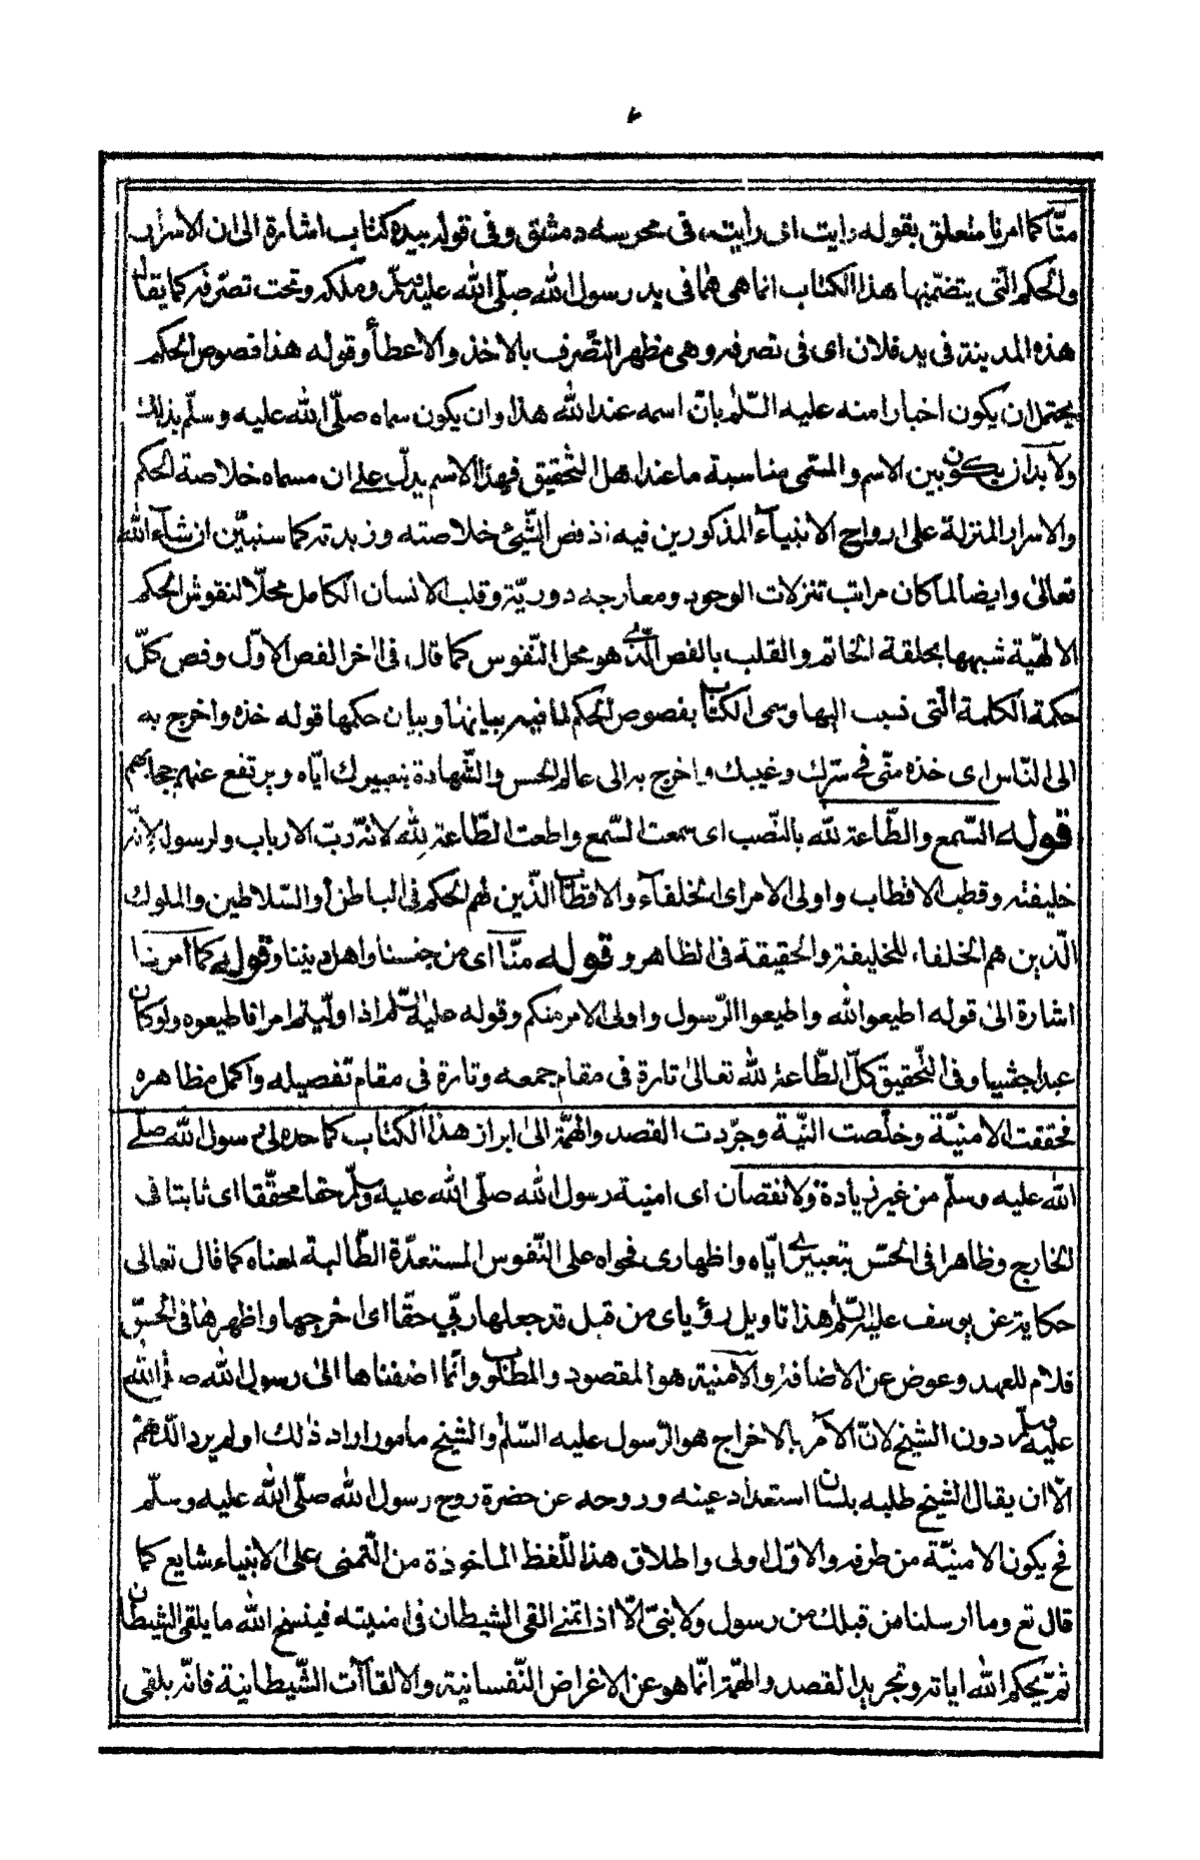 منّا كما امرنا متعلق بقوله رايت اى رايت فى محروسه دمشق وفى قوله بيده كتاب اشارة الى ان الاسرار
والحكم التى يتضمنها هذا الكتاب انما هى مما فى يد رسول الله صلّى الله عليه وسلّم وملكه وتحت تصرّفه كما يقال
هذه المدينة فى يد فلان اى فى تصرفه وهى مظهر التصّرف بالاخذ والاعطأ وقوله هذا فصوص الحكم
يحتمل ان يكون اخبارا منه عليه السّلم بانّ اسمه عند الله هذا وان يكون سماه صلّى الله عليه وسلّم بذلك
ولا بد ان يكون بين الاسم والمسمى مناسبة ما عند اهل التحقيق فهذا الاسم يدلّ على ان مسماه خلاصة الحكم
والاسرار المنزلة على ارواح الانبيآء المذكورين فيه اذ فص الشّيئ خلاصته وزبدته كما سنبيّن ان شآء الله
تعالىٰ وايضا لما كان مراتب تنزلات الوجود ومعارجه دوريّة وقلب الانسان الكامل محلّا لنقوش الحكم
الالهيّة شبهها بحلقة الخاتم والقلب بالفص الّذى هو محل النّقوس كما قال فى اخر الفص الاوّل وفص كلّ
حكمة الكلمة الّتى نسبت اليها وسمى الكتاب بفصوص الحكم لما فيه بيانها وبيان حكمها قوله خذه واخرج به
الى النّاس اى خذه منّى فى سرّك وغيبك واخرج به الى عالم الحس والشّهادة بتعبيرك ايّاه ويرتفع عنهم حجابهم
قوله السّمع والطّاعة لله بالنّصب اى سمعت السّمع واطعت الطّاعة لله لانّه ربّ الارباب ولرسوله لانّه
خليفته وقطب الاقطاب واولى الامر اى الخلفآء والاقطاب الّذين لهم الحكم فى الباطن أو السّلاطين والملوك
الّذين هم الخلفاء للخليفة والحقيقة فى الظاهر وقوله منّا اى من جنسنا واهل ديننا وقوله كما امرنا
اشارة الىٰ قوله اطيعوا الله واطيعوا الرّسول واولى الامر منكم وقوله عليه السّلم اذا ولّيتم امرا فاطيعوه ولو كان
عبدا حبشيا وفى التّحقيق كلّ الطّاعة لله تعالىٰ تارة فى مقام جمعه وتارة فى مقام تفصيله واكمل مظاهره
فحققت الامنيّة وخلّصت النيّة وجرّدت القصد والهمّة الىٰ ابراز هذا الكتاب كما حده لى رسول الله صلّى
الله عليه وسلّم من غير زيادة ولا نقصان اى امنية رسول الله صلّى الله عليه وسلّم حقا محقّقا اى ثابتا فى
الخارج وظاهرا فى الحسّ بتعبيرى ايّاه واظهارى فحواه على النّفوس المستعدّة الطّالبة لمعناه كما قال تعالى
حكاية عن يوسف عليه السّلم هذا تاويل رؤياى من قبل قد جعلها ربّى حقّا اى اخرجها واظهرها فى الحسّ
فلام للعهد وعوض عن الاضافة والامنية هو المقصود والمطلوب وانّما اضفناها الىٰ رسول الله صلى الله
عليه وسلّم دون الشيخ لانّ الآمر بالاخراج هو الرّسول عليه السّلم والشيخ مامور اراد ذلك اولم يرد اللّهمّ
الّا ان يقال الشيخ طلبه بلسان استعداد عينه وروحه عن حضرة روح رسول الله صلّى الله عليه وسلّم
فح يكون الامنيّة من طرفه والاوّل اولى واطلاق هذا اللّفظ الماخوذة من التّمنى على الانبياء شايع كما
قال تع وما ارسلنا من قبلك من رسول ولا نبىّ الّا اذا تمنى القى الشيطان فى امنيته فينسخ الله ما يلقى الشيطان
ثمّ يحكم الله اياته وتجريد القصد والهمّة انّما هو عن الاغراض النّفسانية والالقآات الشّيطانية فانّه بلقى